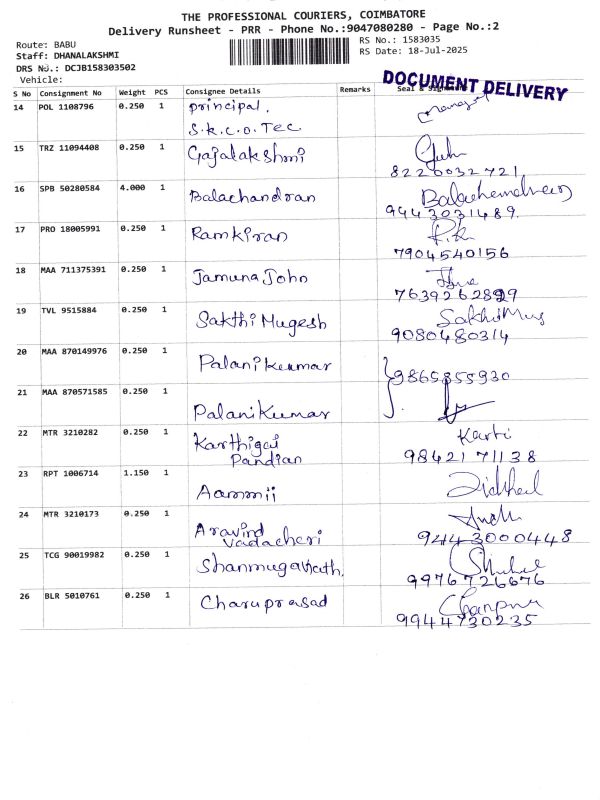 THE PROFESSIONAL COURIERS, COIMBATORE
Delivery Runsheet - PRR - Phone No.:9047080280 - Page No.:2
Route: BABU
RS No.: 1583035
Staff: DHANALAKSHMI
RS Date: 18-Jul-2025
DRS No.: DCJB158303502
Vehicle:
DOCUMENT DELIVERY
S No Consignment No Weight PCS Consignee Details Remarks Seal &
14 POL 1108796 0.250 1 principal,
S.k.c.o.Tec
15 TRZ 11094408 0.250 1 Gajalakshmi
8220032721
16 SPB 50280584 4.000 1 Balachandran
9443031489.
17 PRO 18005991 0.250 1 Ramkiran R.k
7904540156
18 MAA 711375391 0.250 1 Jamuna John
7639262899
19 TVL 9515884 0.250 1 Sakthi Mugesh
9080480314
20 MAA 870149976 0.250 1 Palanikumar
9865855930
21 MAA 870571585 0.250 1 PalaniKumar
22 MTR 3210282 0.250 1 Karthigai Karti
Pandian 9842171138
23 RPT 1006714 1.150 1 Aammii
24 MTR 3210173 0.250 1 Aravind
Vadacheri 9443000448
25 TCG 90019982 0.250 1 Shanmuganath.
9976726676
26 BLR 5010761 0.250 1 Charuprasad
9944730235